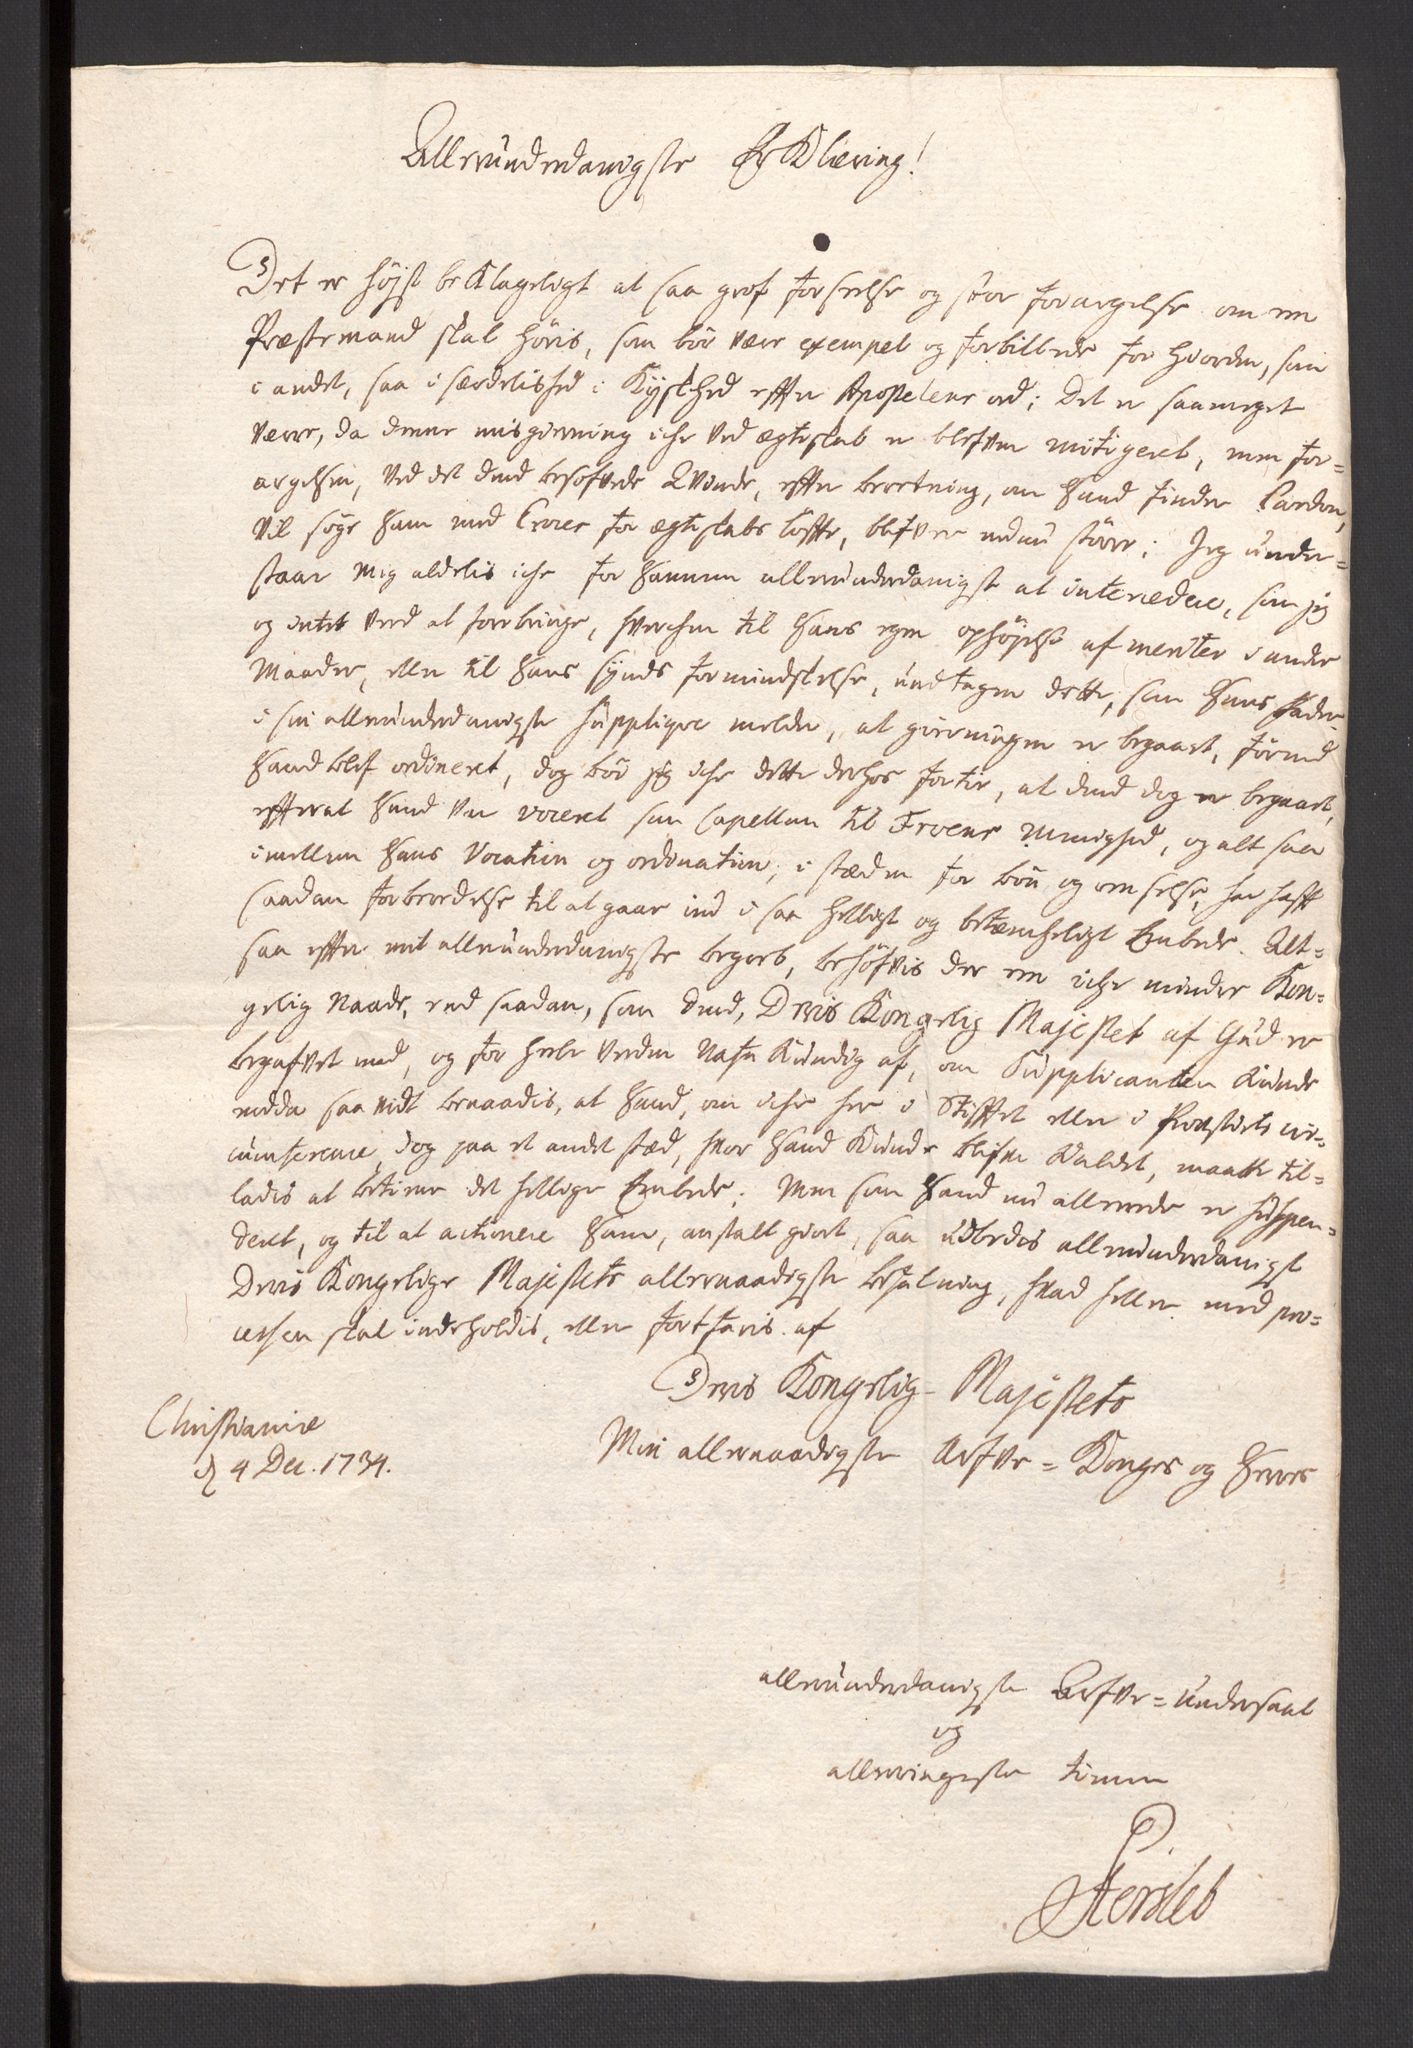 Allerunderdanigste Erklæring!
Det er højst beklageligt at saa grof forseelse og stor forargelse om en
Præstemand skal høris, som bör være exempel og forbillede for hiorden, som
i andet, saa i særdelished i Kyskhed effter Apostelens ord; Det er saameget
værre, da denne misgierning iche ved ægteskab er blefven mitigeret, men for=
argelsen, ved det dend besofvede Qvinde, effter beretning, om hand finder Pardon,
vil søge ham med Proces for ægteskabs löffte, blifver endnu större; Jeg under=
staar mig aldelis iche for hannem allerunderdanigst at intercedere, som jeg
og intet veed at forebringe, hverchen til hans egen ophöjelse af meriter i andre
Maader, eller til hans synds formindskelse, undtagen dette, som hans fader
i sin allerunderdanigste suppliqve melder, at gierningen er begaaet, förend
hand blef ordineret, dog bör jeg iche dette derhos fortie, at dend dog er begaaet,
effterat hand var voceret som Capellan til Froens Menighed, og alt saa
imellem hans Vocation og ordination, i stæden for bön og omselse, har hafft
saadan forberedelse til at gaae ind i saa helligt og betæncheligt Embede. Alt=
saa effter mit allerunderdanigste begreb, behöfvis der en iche mindre Kon=
gelig Naade, end saadan, som dend, Deris Kongelig Majestet af Gud er
begafvet med, og for heele verden Nafnkundig af, om Supplicanten kunde
endda saa vidt benaadis, at hand, om iche her i Stifftet eller i Provstiets cir=
cumference, dog paa et andet stæd, hvor hand kunde blifve kaldet, maatte til=
ladis at betiene det hellige Embede; Men som hand nu allerede er suspen=
deret, og til at actionere ham, anstalt giort, saa udbedis allerunderdanigst
Deris Kongelige Majestets allernaadigste befalning, hvad heller med pro=
cessen skal indeholdis, eller fortfaris. af
Deris Kongelig- Majestets
Min allernaadigste Arfve= Konges og Herres
Christianiæ
d 4 Dec. 1734.
allerunderdanigste Arfve= Undersaat
og
allerringeste tiener
P.
Hersleb